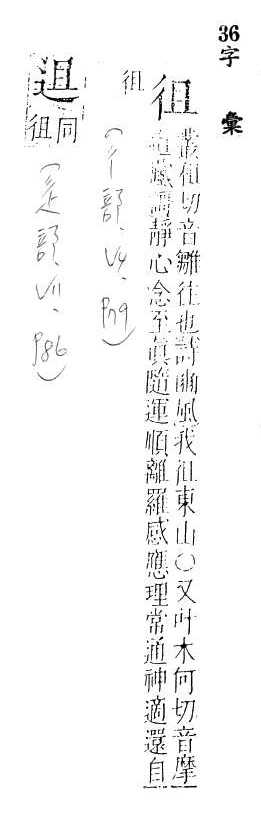 36字 彙
徂
叢徂切音雛往也詩豳風我徂東山○又叶木何切音摩
道藏謌靜心念至眞隨運順離羅感應理常通神適還自
徂
(彳部、V4、P79)
同徂
(辵部、V11、P86)